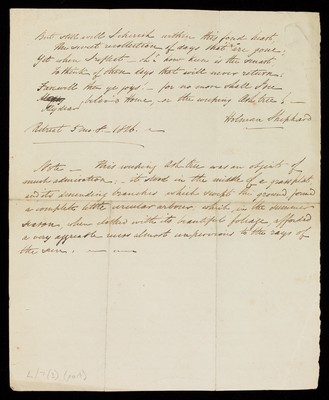 But still will I cherish within this fond breast
The sweet recollection of days that are gone;
Yet when I reflect — oh! how keen is the smart
To think of these days that will never return.
Farewell then ye joys! — for no more shall I see
My dear Home, or the weeping Ash tree! —
Holman Shephard
Retreat 5 mo 8. 1826.
Note — This weeping Ash tree was an object of
much admiration; — it stood in the middle of a grassplat,
and its descending branches which swept the ground formed
a complete little circular arbour which in the summer
season, when clothed with its beautiful foliage afforded
a very agreeable and almost impervious to the rays of
the sun. — — —
L/1/(2) (part)